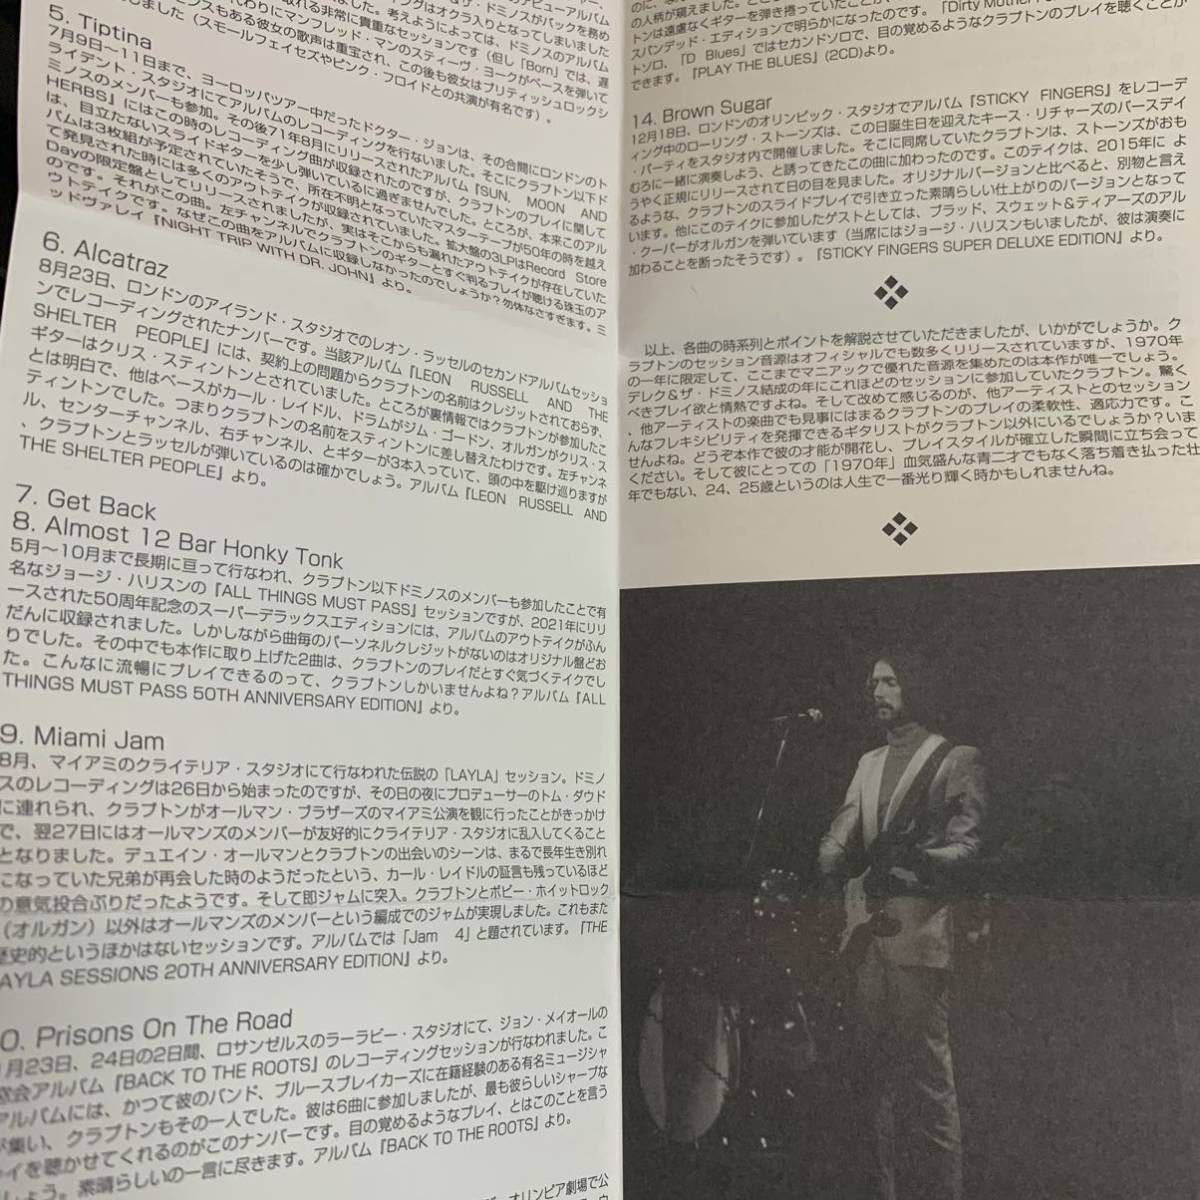 5. Tiptina
7月9日〜11日まで、ヨーロッパツアー中だったドクター・ジョンは、その合間にロンドンのト
ライデント・スタジオにてアルバムのレコーディングを行ないました。そこにクラプトン以下ド
ミノスのメンバーも参加。その後71年8月にリリースされたアルバム『SUN, MOON AND
HERBS』にはこの時のレコーディング曲が収録されたのですが、クラプトンのプレイに関して
は、目立たないスライドギターを少し弾いているに過ぎませんでした。ところが、本来このアル
バムは3枚組が予定されていたそうで、所在不明となっていたマスターテープが50年の時を越え
て発見された時には多くのアウトテイクが収録されていました。拡大盤の3LPはRecord Store
Dayの限定盤としてリリースされましたが、実はそこからも漏れたアウトテイクが存在していた
のです。それがこの曲。左チャンネルでクラプトンのギターとすぐ判るプレイが聴ける珠玉のア
ウトテイクです。なぜこの曲をアルバムに収録しなかったのでしょうか?勿体なさすぎます。ミ
ッドヴァレイ『NIGHT TRIP WITH DR. JOHN』より。
6. Alcatraz
8月23日、ロンドンのアイランド・スタジオでのレオン・ラッセルのセカンドアルバムセッショ
ンでレコーディングされたナンバーです。当該アルバム『LEON RUSSELL AND THE
SHELTER PEOPLE』には、契約上の問題からクラプトンの名前はクレジットされておらず、
ギターはクリス・スティントンとされていました。ところが裏情報ではクラプトンが参加したこ
とは明白で、他はベースがカール・レイドル、ドラムがジム・ゴードン、オルガンがクリス・ス
ティントンでした。つまりクラプトンの名前をスティントンに差し替えたわけです。左チャンネ
ル、センターチャンネル、右チャンネル、とギターが3本入っていて、頭の中を駆け巡りますが
、クラプトンとラッセルが弾いているのは確かでしょう。アルバム『LEON RUSSELL AND
THE SHELTER PEOPLE』より。
7. Get Back
8. Almost 12 Bar Honky Tonk
5月〜10月まで長期に亘って行なわれ、クラプトン以下ドミノスのメンバーも参加したことで有
名なジョージ・ハリスンの『ALL THINGS MUST PASS』セッションですが、2021年にリリ
ースされた50周年記念のスーパーデラックスエディションには、アルバムのアウトテイクがふん
だんに収録されました。しかしながら曲毎のパーソネルクレジットがないのはオリジナル盤どお
りでした。その中でも本作に取り上げた2曲は、クラプトンのプレイだとすぐ気づくテイクでし
た。こんなに流暢にプレイできるのって、クラプトンしかいませんよね?アルバム『ALL
THINGS MUST PASS 50TH ANNIVERSARY EDITION』より。
9. Miami Jam
8月、マイアミのクライテリア・スタジオにて行なわれた伝説の「LAYLA」セッション。ドミノ
スのレコーディングは26日から始まったのですが、その日の夜にプロデューサーのトム・ダウド
に連れられ、クラプトンがオールマン・ブラザーズのマイアミ公演を観に行ったことがきっかけ
で、翌27日にはオールマンズのメンバーが友好的にクライテリア・スタジオに乱入してくること
となりました。デュエイン・オールマンとクラプトンの出会いのシーンは、まるで長年生き別れ
になっていた兄弟が再会した時のようだったという、カール・レイドルの証言も残っているほど
の意気投合ぶりだったようです。そして即ジャムに突入。クラプトンとボビー・ホイットロック
(オルガン)以外はオールマンズのメンバーという編成でのジャムが実現しました。これもまた
歴史的というほかはないセッションです。アルバムでは「Jam 4」と題されています。『THE
LAYLA SESSIONS 20TH ANNIVERSARY EDITION』より。
0. Prisons On The Road
月23日、24日の2日間、ロサンゼルスのラーラビー・スタジオにて、ジョン・メイオールの
会アルバム『BACK TO THE ROOTS』のレコーディングセッションが行なわれました。こ
アルバムには、かつて彼のバンド、ブルースブレイカーズに在籍経験のある有名ミュージシャ
が集い、クラプトンもその一人でした。彼は6曲に参加しましたが、最も彼らしいシャープな
レイを聴かせてくれるのがこのナンバーです。目の覚めるようなプレイ、とはこのことを言う
しょう。素晴らしいの一言に尽きます。アルバム『BACK TO THE ROOTS』より。
オリンピア劇場で公
トンは遠慮なくギターを弾き捲っていたことが
スパンデッド・エディションで明らかになったのです。
トソロ、「D Blues」ではセカンドソロで、目の覚めるようなクラプトンのプレイを聴くことが
できます。『PLAY THE BLUES』(2CD)より。
14. Brown Sugar
12月18日、ロンドンのオリンピック・スタジオでアルバム『STICKY FINGERS』をレコーデ
ィング中のローリング・ストーンズは、この日誕生日を迎えたキース・リチャーズのバースデイ
・パーティをスタジオ内で開催しました。そこに同席していたクラプトンは、ストーンズがおも
むろに一緒に演奏しよう、と誘ってきたこの曲に加わったのです。このテイクは、2015年に よ
うやく正規にリリースされて日の目を見ました。オリジナルバージョンと比べると、別物と言え
るような、クラプトンのスライドプレイで引き立った素晴らしい仕上がりのバージョンとなって
います。他にこのテイクに参加したゲストとしては、ブラッド、スウェット&ティアーズのアル
・クーパーがオルガンを弾いています(当席にはジョージ・ハリスンもいましたが、彼は演奏に
加わることを断ったそうです)。『STICKY FINGERS SUPER DELUXE EDITION』より。
以上、各曲の時系列とポイントを解説させていただきましたが、いかがでしょうか。ク
ラプトンのセッション音源はオフィシャルでも数多くリリースされていますが、1970年
の一年に限定して、ここまでマニアックで優れた音源を集めたのは本作が唯一でしょう。
デレク&ザ・ドミノス結成の年にこれほどのセッションに参加していたクラプトン。驚く
べきプレイ欲と情熱ですよね。そして改めて感じるのが、他アーティストとのセッション
、他アーティストの楽曲でも見事にはまるクラプトンのプレイの柔軟性、適応力です。こ
んなフレキシビリティを発揮できるギタリストがクラプトン以外にいるでしょうか?いま
せんよね。どうぞ本作で彼の才能が開花し、プレイスタイルが確立した瞬間に立ち会って
ください。そして彼にとっての「1970年」血気盛んな青二才でもなく落ち着き払った壮
年でもない、24、25歳というのは人生で一番光り輝く時かもしれませんね。